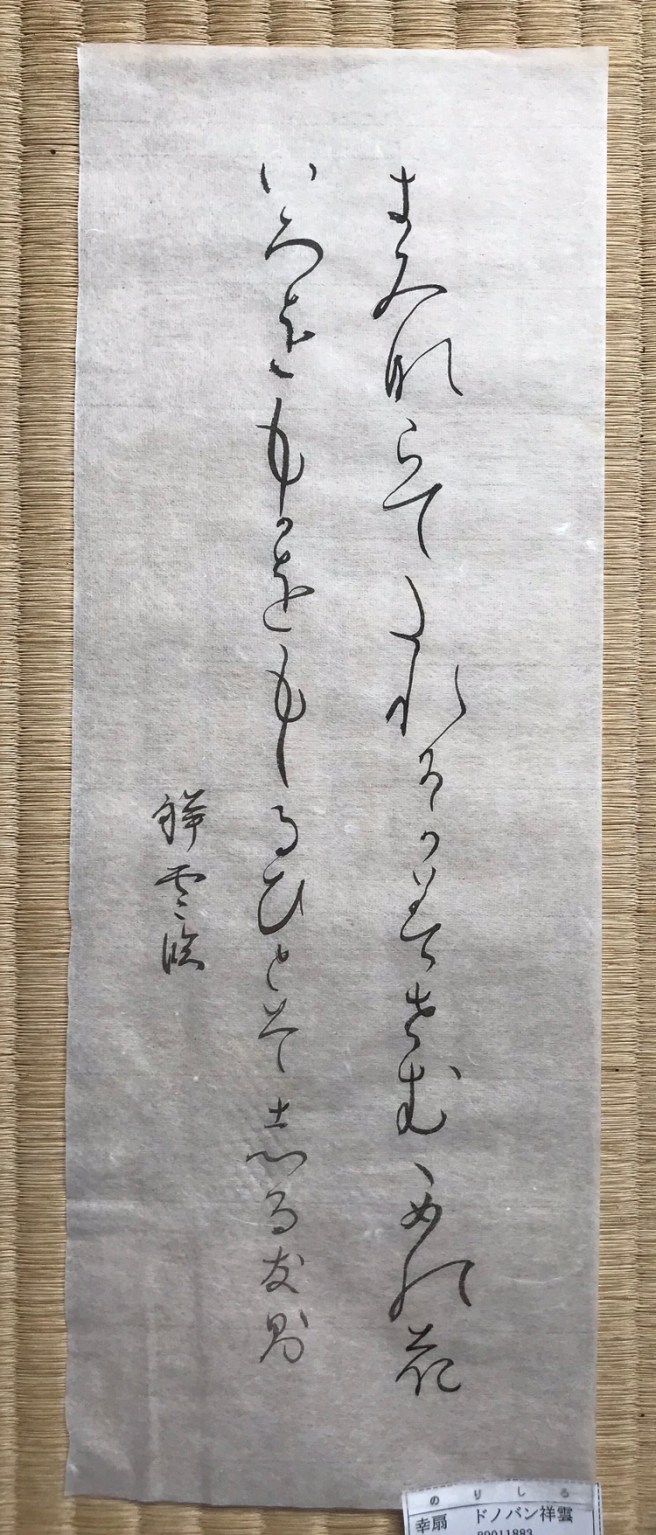 きみならてたれにかみせむうめの花
いろをもかをもしるひとそ志る友則
祥雲臨
のりしろ
幸扇 ドノバン祥雲